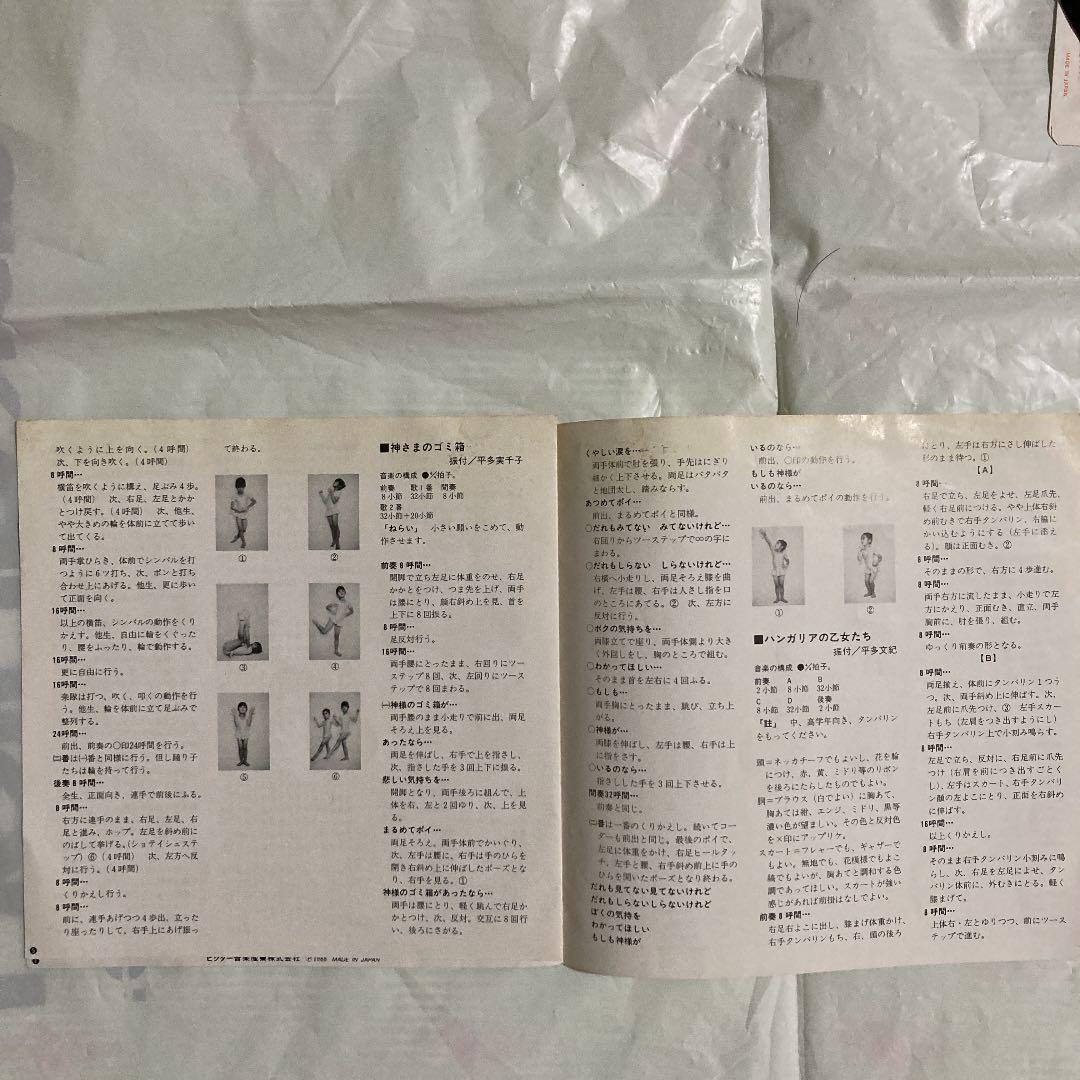 吹くように上を向く。(4呼間)
次、下を向き吹く。(4呼間)
8呼間…
横笛を吹くように構え、足ぶみ4歩。
(4呼間)　次、右足、左足とかか
とつけ戻す。(4呼間)　次、他生、
やや大きめの輪を体前に立てて歩い
て出てくる。
8呼間…
両手掌ひらき、体前でシンバルを打
つように6ツ打ち、次、ポンと打ち
合わせ上にあげる。他生、更に歩い
て正面を向く。
16呼間…
以上の横笛、シンバルの動作をくり
かえす。他生、自由に輪をくぐった
り、腰をふったり、輪で動作する。
16呼間…
更に自由に行う。
16呼間…
楽隊は打つ、吹く、叩くの動作を行
う。他生、輪を体前に立て足ぶみで
整列する。
24呼間…
前出、前奏の〇印24呼間を行う。
㈡番は㈠番と同様に行う。但し踊り子
たちは輪を持って行う。
後奏8呼間…
全生、正面向き、連手で前後にふる。
8呼間…
右方に連手のまま、右足、左足、右
足と進み、ホップ。左足を斜め前に
のばして挙げる。(ショティシュステ
ップ) ⑥ (4呼間)　次、左方へ反
対に行う。(4呼間)
8呼間…
くりかえし行う。
8呼間…
前に、連手あげつつ4歩出、立った
り座ったりして、右手上にあげ振っ
て終わる。
①
②
③
④
⑤
⑥
■神さまのゴミ箱
振付／平多実千子
音楽の構成 ●4/4拍子。
前奏　歌1番　間奏
8小節　32小節　8小節
歌2番
32小節+20小節
「ねらい」　小さい願いをこめて、動
作させます。
前奏8呼間…
開脚で立ち左足に体重をのせ、右足
かかとをつけ、つま先を上げ、両手
は腰にとり、顔右斜め上を見、首を
上下に8回振る。
8呼間…
足反対行う。
16呼間…
両手腰にとったまま、右回りにツー
ステップ8回、次、左回りにツース
テップで8回まわる。
㈠神様のゴミ箱が…
両手腰のまま小走りで前に出、両足
そろえ上を見る。
あったなら…
両足を伸ばし、右手で上を指さし、
次、指さした手を3回上下に振る。
悲しい気持ちを…
開脚となり、両手後ろに組んで、上
体を右、左と2回ゆり、次、上を見
る。
まるめてポイ…
両足そろえ。両手体前でかいぐり、
次、左手は腰に、右手は手のひらを
開き右斜め上に伸ばしたポーズとな
り、右手を見る。①
神様のゴミ箱があったなら…
両手は腰にとり、軽く跳んで右足か
かとつけ、次、反対。交互に8回行
い、後ろにさがる。
ビクター音楽産業株式会社 Ⓟ1988 MADE IN JAPAN
くやしい涙を…
両手体前で肘を張り、手先はにぎり
細かく上下させる。両足はバタバタ
と地団太し、踏みならす。
あつめてポイ…
前出、まるめてポイと同様。
〇だれもみてない　みてないけれど…
右回りからツーステップで∞の字に
まわる。
〇だれもしらない　しらないけれど…
右横へ小走りし、両足そろえ膝を曲
げ、左手は腰、右手は人さし指を口
のところにあてる。②　次、左方に
反対に行う。
〇ボクの気持ちを…
両膝立てで座り、両手体側より大き
く外回しをし、胸のところで組む。
〇わかってほしい…
そのまま首を左右に4回ふる。
〇もしも…
両手胸にとったまま、跳び、立ち上
がる。
〇神様が…
両膝を伸ばし、左手は腰、右手は上
に指をさす。
〇いるのなら…
指さした手を3回上下させる。
間奏32呼間…
前奏と同じ。
㈡番は一番のくりかえし。続いてコー
ダーも前出と同じ。最後のポイで、
左足に体重をかけ、右足ヒールタッ
チ、左手と腰、右手斜め前上に手の
ひらを開いたポーズとなり終わる。
だれも見てない見てないけれど
だれもしらないしらないけれど
ぼくの気持を
わかってほしい
もしも神様が
いるのなら…
前出、〇印の動作を行う。
もしも神様が
いるのなら…
前出、まるめてポイの動作を行う。
①
②
■ハンガリアの乙女たち
振付／平多文紀
音楽の構成 ●2/4拍子。
前奏　A　B
2小節　8小節　32小節
C　D　後奏
8小節　32小節　2小節
「註」　中、高学年向き、タンバリン
をもってください。
頭＝ネッカチーフでもよいし、花を輪
につけ、赤、黄、ミドリ等のリボン
を後ろにたらしたものでもよい。
胴＝ブラウス（白でよい）に胸あて、
胸あては紺、エンジ、ミドリ、黒等
濃い色が望ましい。その色と反対色
を×印にアップリケ。
スカート＝フレヤーでも、ギャザーで
もよい。無地でも、花模様でもよこ
縞でもよいが、胸あてと調和する色
調であってほしい。スカートが強い
感じがあれば前掛はなしでよい。
前奏8呼間…
右足右よこに出し、膝まげ体重かけ、
右手タンバリンもち、右、頭の後ろ
にとり、左手は右方にさし伸ばした
形のまま待つ。①
【A】
8呼間…
右足で立ち、左足をよせ、左足爪先、
軽く右足前につける。やや上体右斜
め前むきで右手タンバリン、右脇に
かい込むようにする（左手に添え
る）。顔は正面むき。②
8呼間…
そのままの形で、右方に4歩進む。
8呼間…
両手右方に流したまま、小走りで左
方にかえり、正面むき、直立、両手
胸前に、肘を張り、組む。
8呼間…
ゆっくり前奏の形となる。
【B】
8呼間…
両足揃え、体前にタンバリン1つう
つ。次、両手斜め上に伸ばす。次、
左足前に爪先つけ、③ 左手スカー
トもち（左肩をつき出すようにし）
右手タンバリン上で小刻み鳴らす。
8呼間…
左足で立ち、反対に、右足前に爪先
つけ（右肩を前につき出すごとく
し)、左手はスカート、右手タンバリ
ン顔の左よこにとり、正面を右斜め
に伸ばす。
16呼間…
以上くりかえし。
8呼間…
そのまま右手タンバリン小刻みに鳴
らし、次、右足を左足によせ、タン
バリン体前に、外むきにとる。軽く
膝まげて。
8呼間…
上体右・左とゆりつつ、前にツース
テップで進む。
MADE IN JAPAN